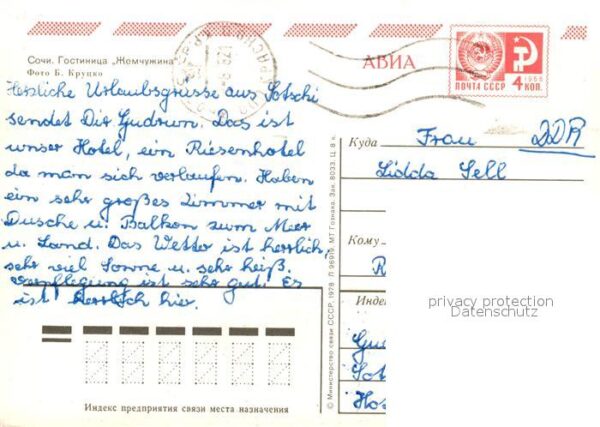 Сочи. Гостиница „Жемчужина"
Фото Б. Круцко
АВИА
ПОЧТА СССР
1966
4 КОП.
Herzliche Urlaubsgrüsse aus Sotschi
sendet Dir Gudrun. Das ist
unser Hotel, ein Riesenhotel
da man sich verlaufen. Haben
ein sehr großes Zimmer mit
Dusche u. Balkon zum Meer
u. Land. Das Wetter ist herrlich,
sehr viel Sonne u. sehr heiß.
Verpflegung ist sehr gut. Es
ist herrlich hier.
Куда Frau DDR
Lidda Sell
Кому
R
Индекс
privacy protection
Datenschutz
Gud
Sot
Ho
© Министерство связи СССР, 1978 Л 96919. МТ Гознака. Зак. 8033. Ц. 8 к.
Индекс предприятия связи места назначения